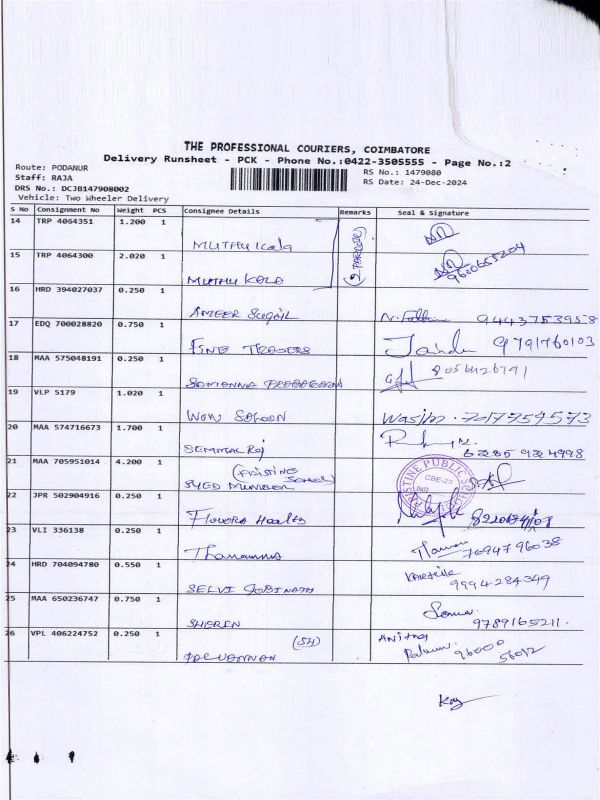 THE PROFESSIONAL COURIERS, COIMBATORE
Delivery Runsheet - PCK - Phone No.:0422-3505555 - Page No.:2
Route: PODANUR
Staff: RAJA
DRS No.: DCJB147908002
Vehicle: Two Wheeler Delivery
RS No.: 1479080
RS Date: 24-Dec-2024
S No Consignment No Weight PCS Consignee Details Remarks Seal & Signature
14 TRP 4064351 1.200 1 MUTHU Kala
15 TRP 4064300 2.020 1 MUTHU KALA 9600655204
16 HRD 394027037 0.250 1 AMEER 9443753958
17 EDQ 700028820 0.750 1 FINE TRADERS 9791760103
18 MAA 575048191 0.250 1
19 VLP 5179 1.020 1 Wasim. 7017759573
20 MAA 574716673 1.700 1 63285 924998
21 MAA 705951014 4.200 1 SYED (PRISTINE SCHOOL)
PRISTINE PUBLIC
CBE-23
22 JPR 502904916 0.250 1
23 VLI 336138 0.250 1 7694796038
24 HRD 704094780 0.550 1 SELVI GOBINATH 9994284349
25 MAA 650236747 0.750 1 SHEREN 9789165211.
26 VPL 406224752 0.250 1 (SH) Anitha 96000 56012